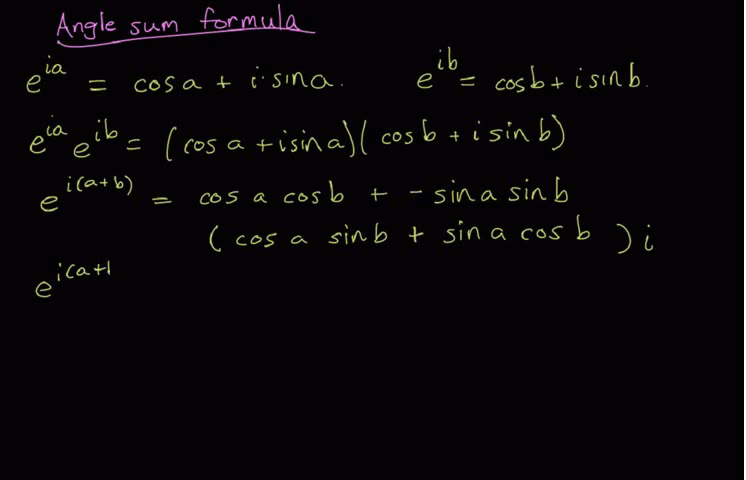 Angle sum formula
e^{ia} = cos a + i·sin a. e^{ib} = cos b + i sin b.
e^{ia} e^{ib} = (cos a + i sin a)(cos b + i sin b)
e^{i(a+b)} = cos a cos b + - sin a sin b
(cos a sin b + sin a cos b) i
e^{i(a+l